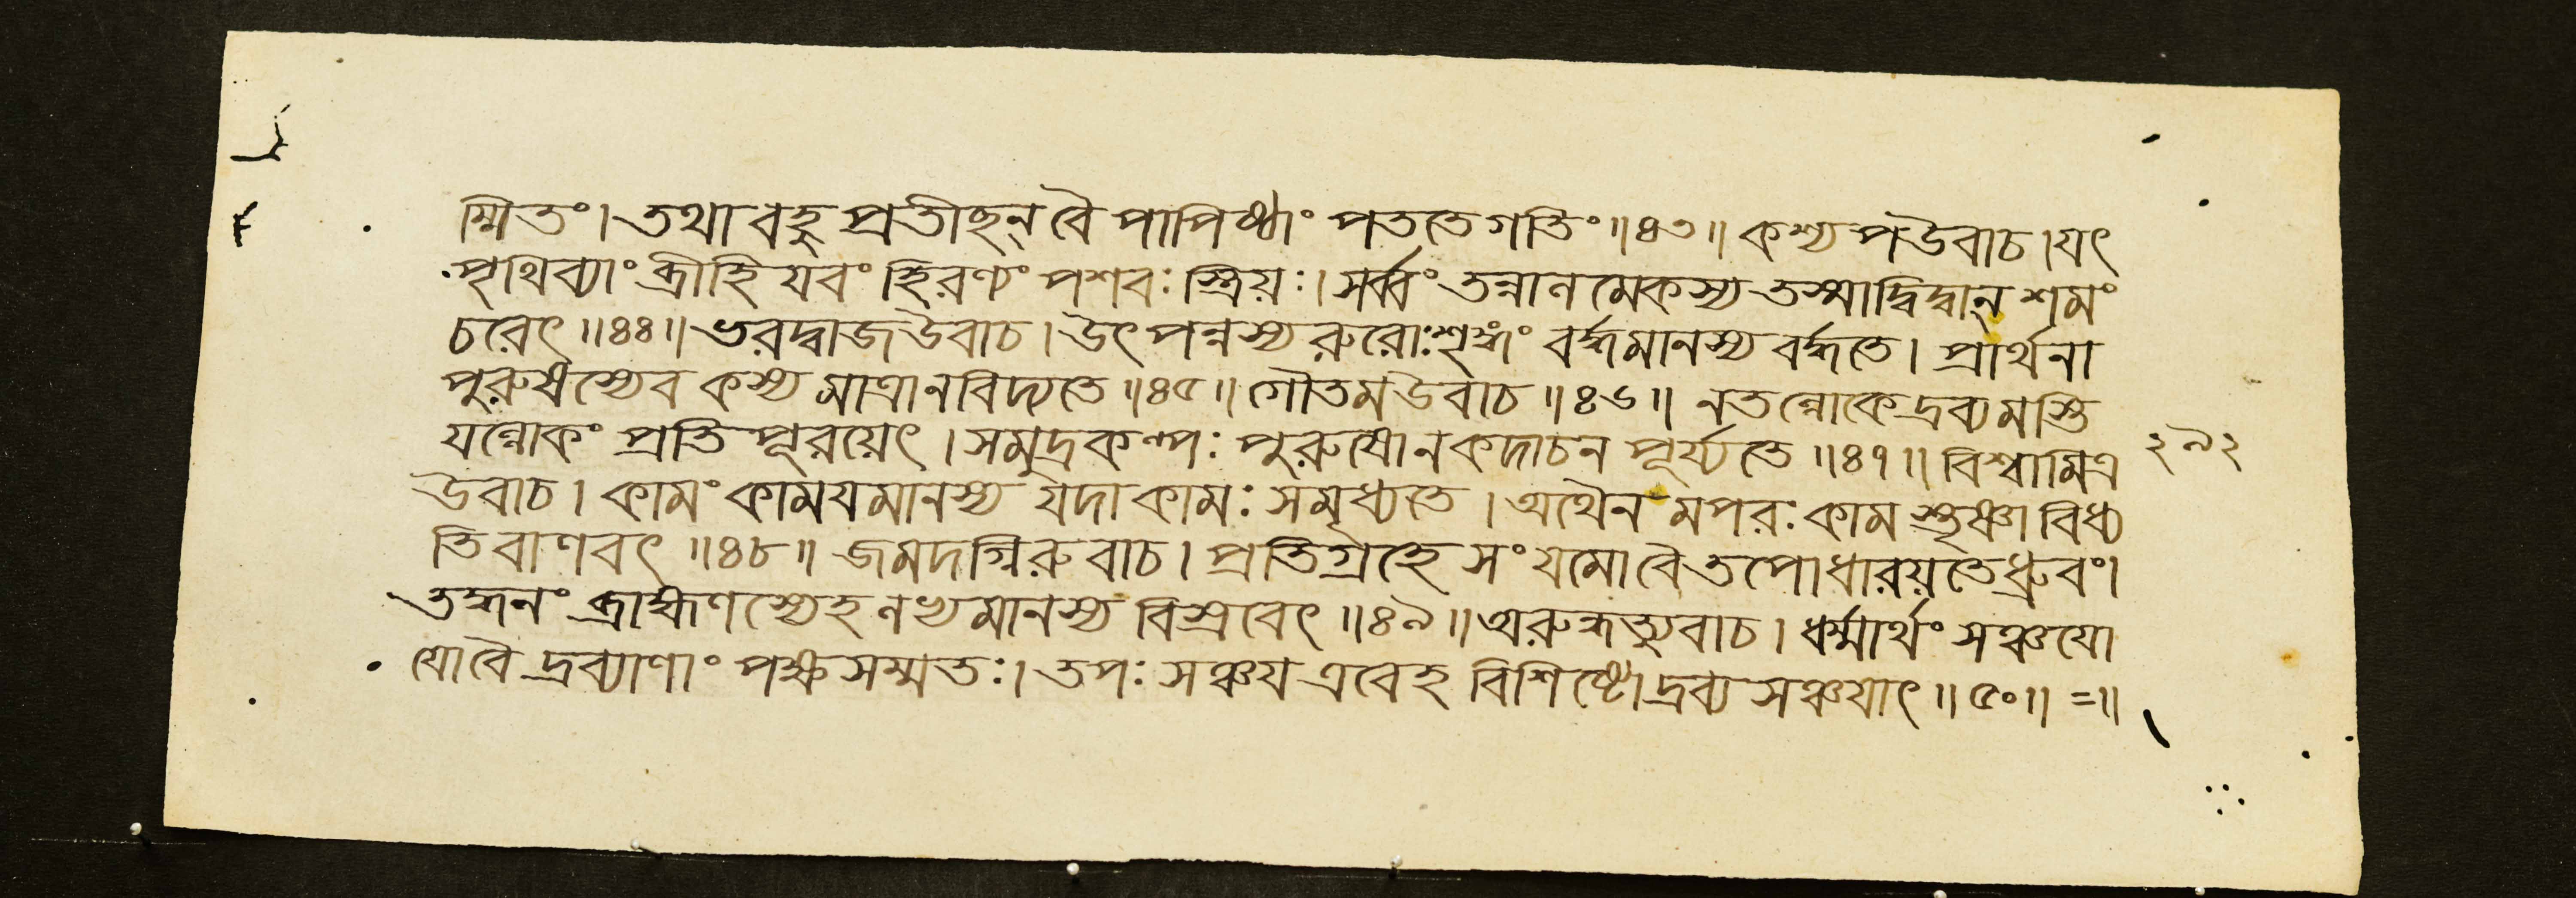 ম্মিতং। তথা বহু প্রতীছন্ বৈ পাপিষ্ঠাং পততে গতিং॥৪৩॥ কশ্যপ উবাচ। যৎ
পৃথিব্যাং ব্রীহি যবং হিরণ্যং পশবঃ স্ত্রিয়ঃ। সর্ব্বং তন্নানমেকস্য তস্মাদ্বিদ্বান্ শমং
চরেৎ॥৪৪॥ ভরদ্বাজ উবাচ। উৎপন্নস্য রুরোঃ শৃঙ্গং বর্দ্ধমানস্য বর্দ্ধতে। প্রার্থনা
পুরুষস্যেব কস্য মাত্রা ন বিদ্যতে॥৪৫॥ গৌতম উবাচ॥৪৬॥ ন তল্লোকে দ্রব্যমস্তি
যল্লোকং প্রতি পূরয়েৎ। সমুদ্রকল্পঃ পুরুষো ন কদাচন পূর্য্যতে॥৪৭॥ বিশ্বামিত্র
উবাচ। কামং কাময়মানস্য যদা কামঃ সমৃধ্যতে। অথৈনমপরঃ কামস্তৃষ্ণা বিধ্য
তি বাণবৎ॥৪৮॥ জমদগ্নিরুবাচ। প্রতিগ্রহে সংযমো বৈ তপো ধারয়তে ধ্রুবং।
তদ্ধনং ব্রাহ্মণস্যেহ লুভ্যমানস্য বিস্রবেৎ॥৪৯॥ অরুন্ধত্যুবাচ। ধর্ম্মার্থং সঞ্চযো
যো বৈ দ্রব্যাণাং পক্ষসম্মতঃ। তপঃ সঞ্চয এবেহ বিশিষ্টো দ্রব্য সঞ্চযাৎ॥৫০॥=॥
২৯২